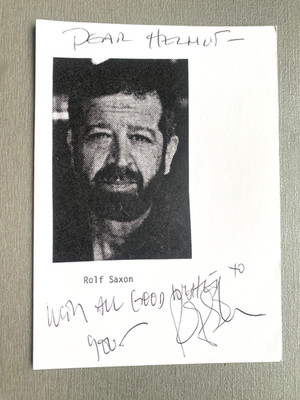 DEAR HELMUT—
Rolf Saxon
WITH ALL GOOD WISHES TO
YOU—